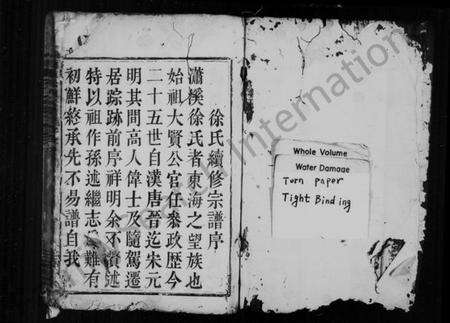 徐氏續修宗譜序
瀟溪徐氏者東海之望族也
始祖大賢公官任叅政歷今
二十五世自漢唐晉迄朱元
明其間高人偉士及隨駕遷
居踪跡前序祥明余不資述
特以祖作孫述繼志難有
初鮮終承先不易譜自我
Whole Volume
Water Damage
Turn paper
Tight Binding
International